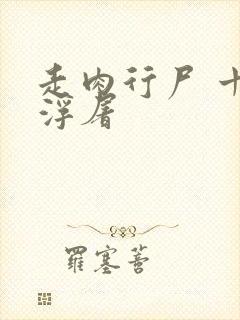 走肉行尸
浮屠
羅塞菩